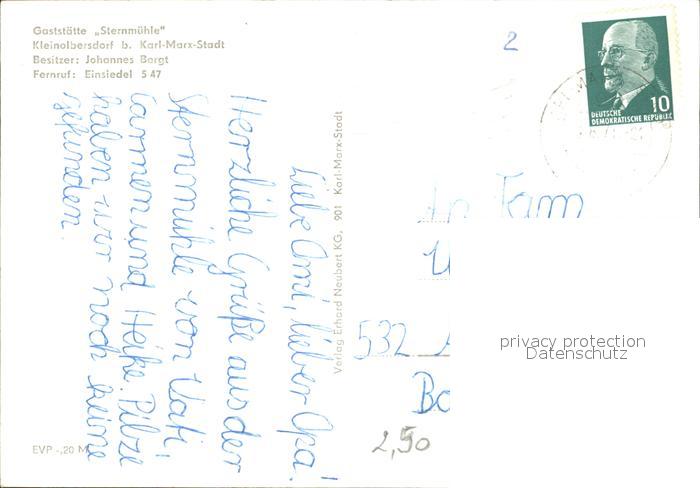 Gaststätte „Sternmühle"
Kleinolbersdorf b. Karl-Marx-Stadt
Besitzer: Johannes Bergt
Fernruf: Einsiedel 5 47
Liebe Omi, lieber Opa!
Herzliche Grüße aus der
Sternmühle von Vati,
Carmen und Heike. Pilze
haben wir noch keine
gefunden.
EVP -,20 M
Verlag Erhard Neubert KG, 901 Karl-Marx-Stadt
2
10
DEUTSCHE
DEMOKRATISCHE REPUBLIK
Fam
532
2,50
privacy protection
Datenschutz